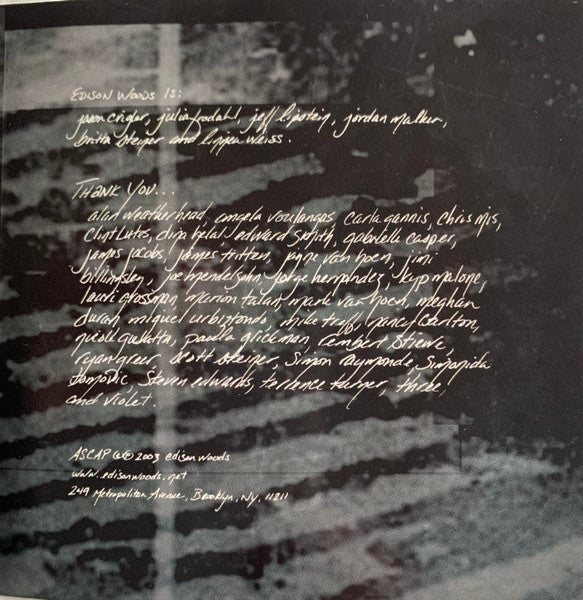 EDISON WOODS IS:
jason crigler, julia frodahl, jeff lipstein, jordan
britta steiner and lippea weiss.
THANK YOU...
alan weatherhead, angela voulangas, carla gannis, chris
clint lutes, edward smith, gabrielle casper,
james jacobs, james tritten, van hoen, jini
billingsley, joe mendelson, jorge hernandez, kyp malone,
lauri grossman, marion talan, mark van hoen, meghan
duran, miguel urbiztondo, mike truffs, nancy carlton,
nicole gullotta, paula glickman, rembert
ryan greer, scott steiner, simon raymonde, sinisa
tomovic, steven edwards, terrence turner, three,
and violet.
ASCAP ©℗ 2003 edison woods
www.edisonwoods.net
249 Metropolitan Avenue, Brooklyn, NY, 11211